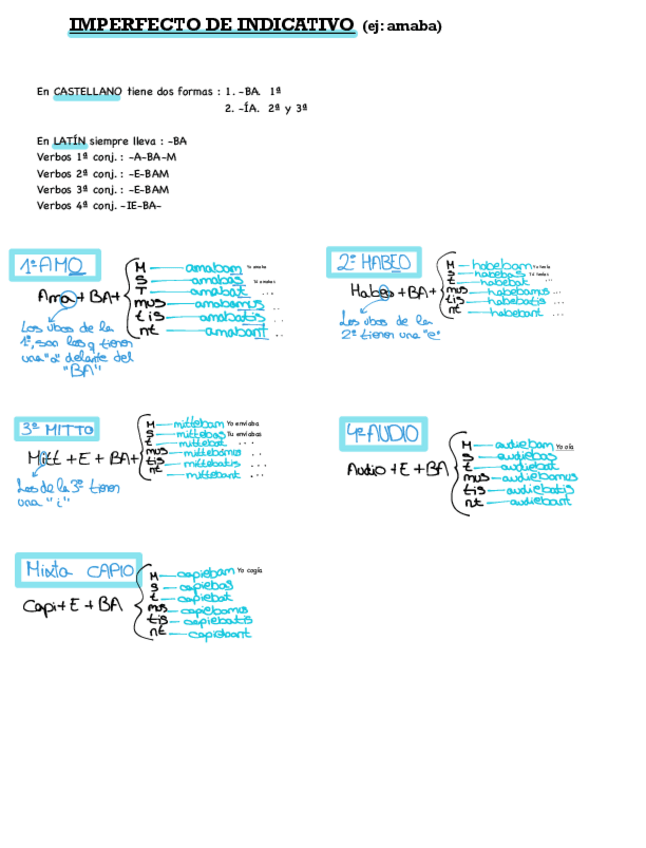 IMPERFECTO DE INDICATIVO (ej: amaba)
En CASTELLANO tiene dos formas : 1. -BA. 1ª
2. -ÍA. 2ª y 3ª
En LATÍN siempre lleva : -BA
Verbos 1ª conj. : -A-BA-M
Verbos 2ª conj. : -E-BAM
Verbos 3ª conj. : -E-BAM
Verbos 4ª conj. -IE-BA-
1ª AMO
Ama + BA+
M amabam Yo amaba
S amabas Tú amabas
T amabat ...
mus amabamus ..
tis amabatis ..
nt amabant ..
Los vbos de la
1ª, son los q tienen
una "a" delante del
"BA"
2ª HABEO
Habeo + BA+
M habebam Yo tenía
S habebas Tú tenías
t habebat ...
mus habebamus ...
tis habebatis ...
nt habebant ..
Los vbos de la
2ª tienen una "e"
3ª MITTO
Mitt + E + BA+
M mittebam Yo enviaba
S mittebas Tu enviabas
t mittebat ...
mus mittebamus ..
tis mittebatis ...
nt mittebant ...
Los de la 3ª tienen
una "i"
4ª AUDIO
Audio + E + BA
M audiebam Yo oía
S audiebas
t audiebat
mus audiebamus
tis audiebatis
nt audiebant
Mixta CAPIO
Capi + E + BA
M capiebam Yo cogía
S capiebas
t capiebat
mus capiebamus
tis capiebatis
nt